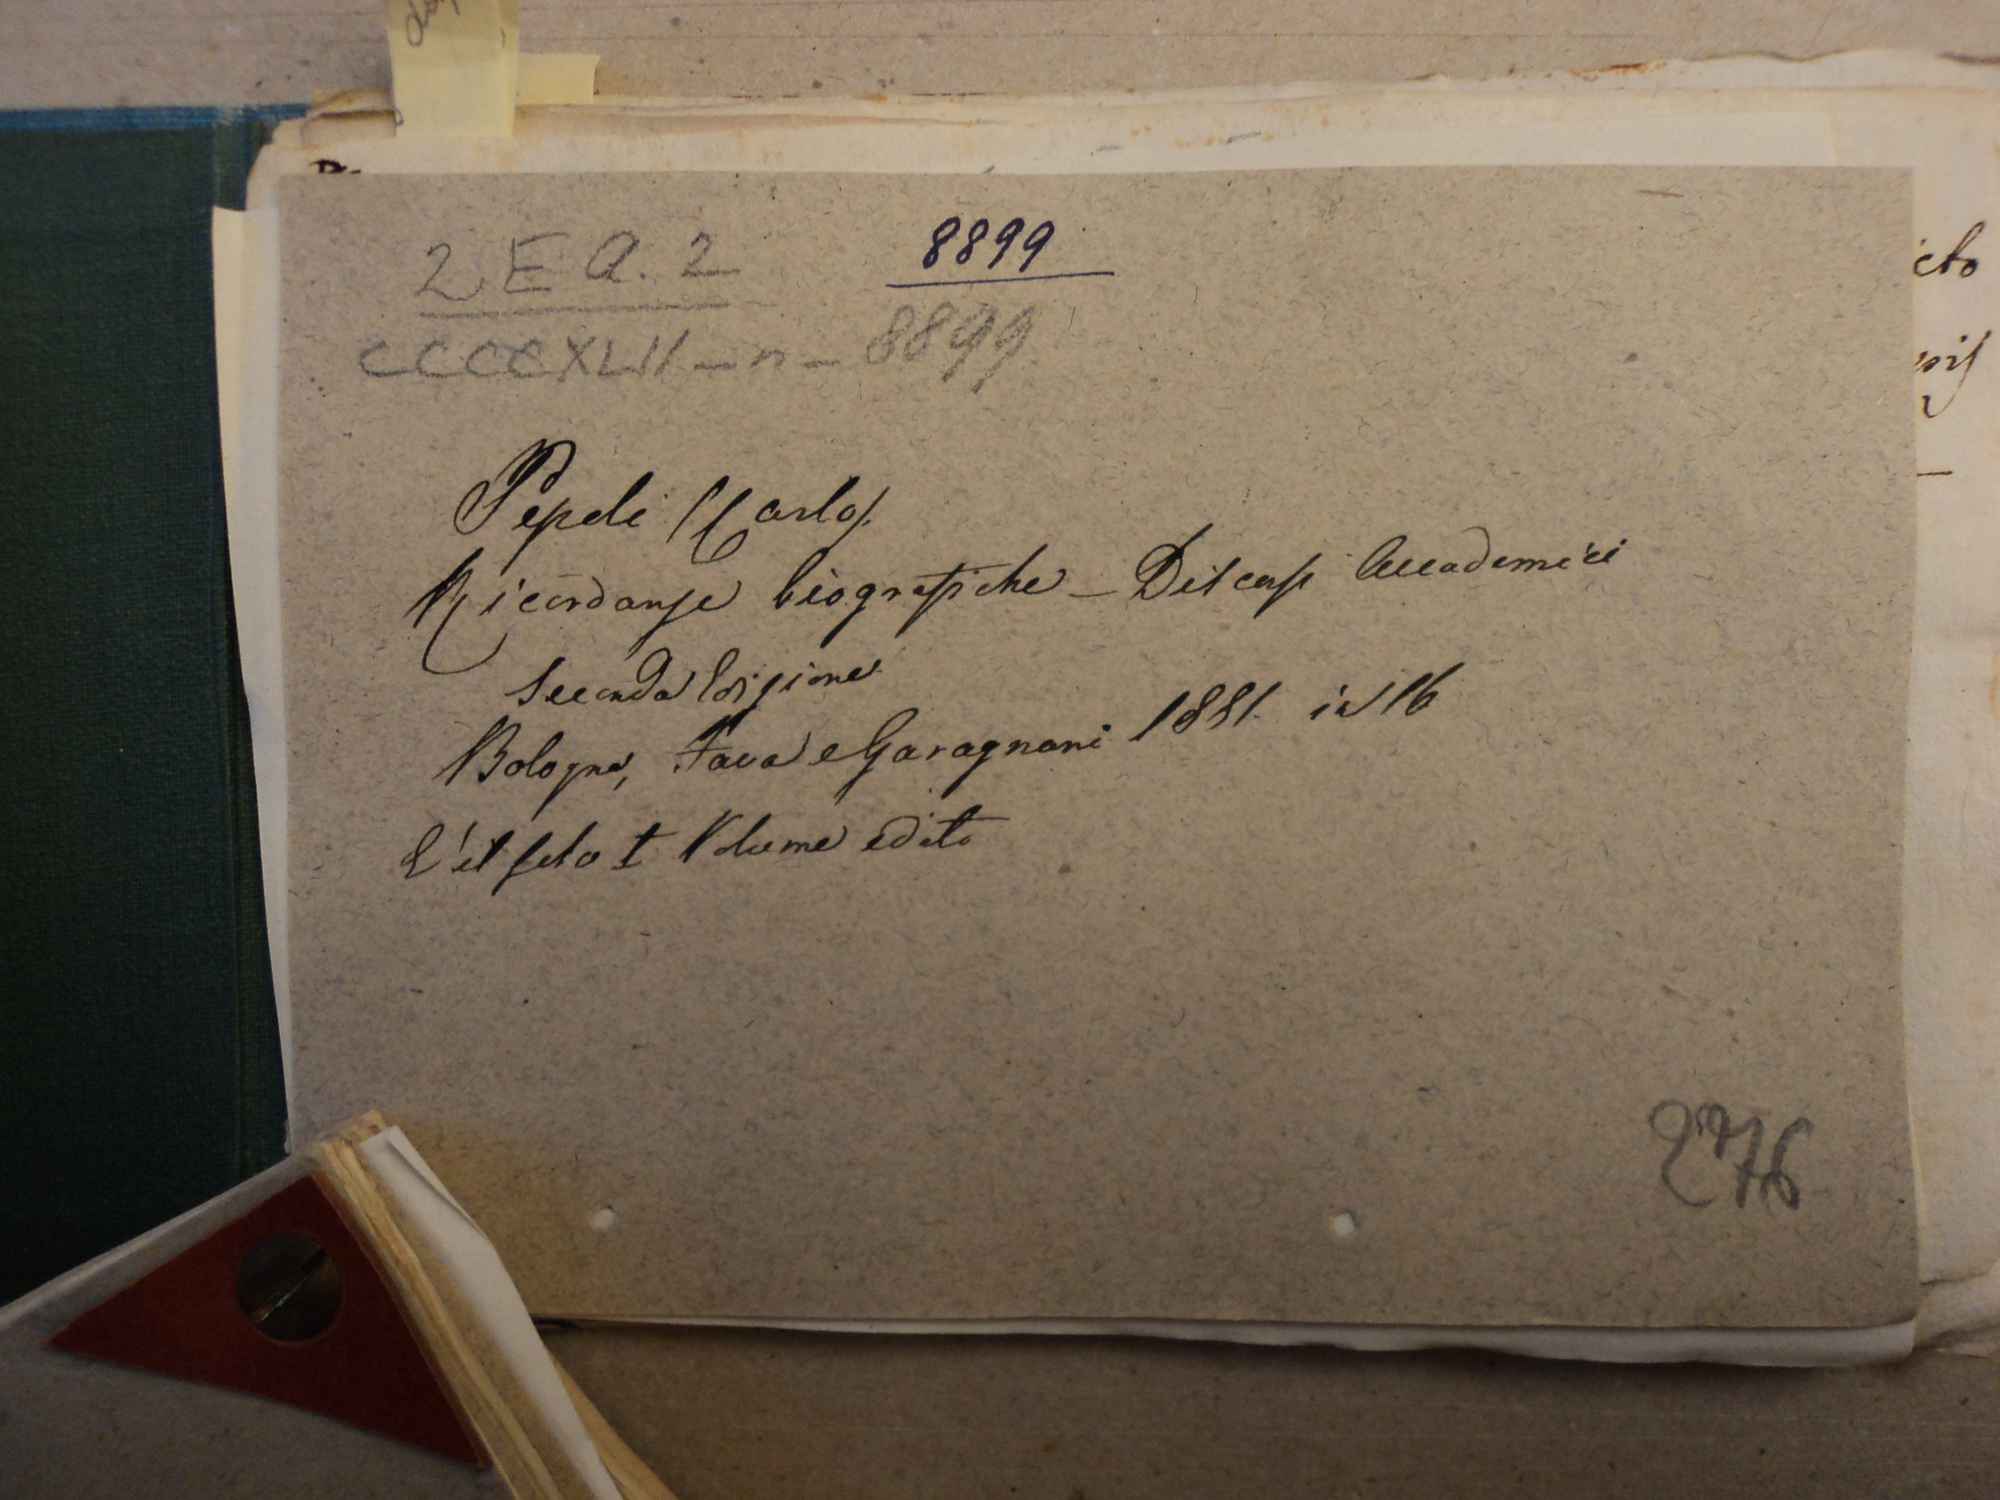 2. E A. 2
8899
CCCCXLVII - n - 8899
Pepoli (Carlo).
Ricordanze biografiche - Discorsi Accademici
Seconda Edizione
Bologna, Fava e Garagnani 1881. in 16
L'è il solo I Volume edito
276